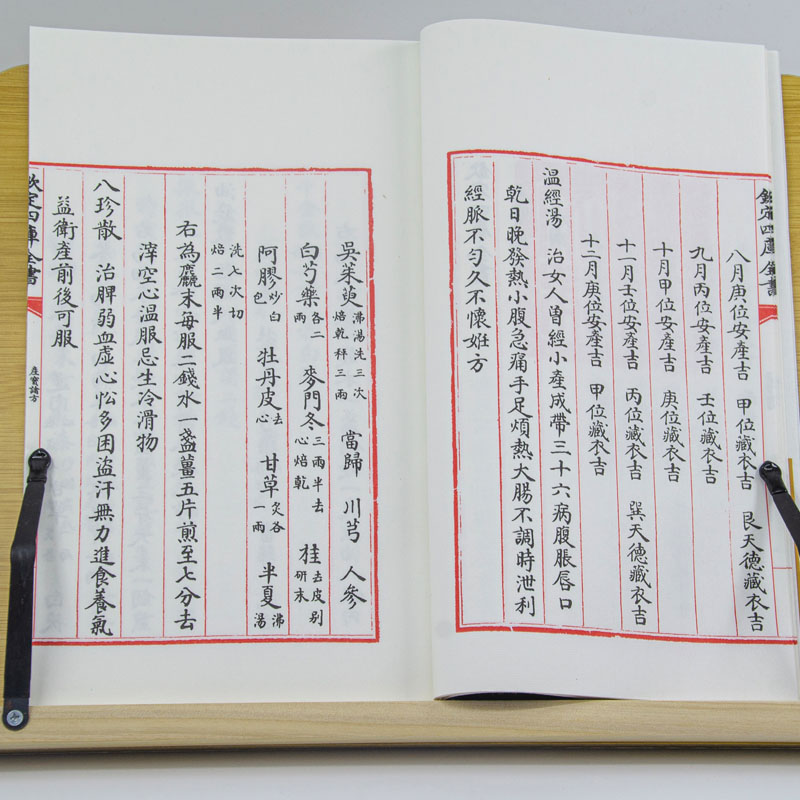 欽定四庫全書
八月庚位安產吉 甲位藏衣吉 艮天德藏衣吉
九月丙位安產吉 壬位藏衣吉
十月甲位安產吉 庚位藏衣吉
十一月壬位安產吉 丙位藏衣吉 巽天德藏衣吉
十二月庚位安產吉 甲位藏衣吉
温經湯 治女人曽經小產成帶三十六病腹脹唇口
乾日晚發熱小腹急痛手足煩熱大腸不調時泄利
經脈不匀久不懷姙方
吳茱萸沸湯洗三次焙乾秤三兩 當歸 川芎 人參
白芍藥各二兩 麥門冬三兩半去心焙乾 桂去皮别研末
阿膠炒白色 牡丹皮去心 甘草炙各一兩 半夏沸湯
洗七次切焙二兩半
右為麤末每服二錢水一盞薑五片煎至七分去
滓空心温服忌生冷滑物
八珍散 治脾弱血虛心忪多困盜汗無力進食養氣
益衛產前後可服
欽定四庫全書
產寶諸方